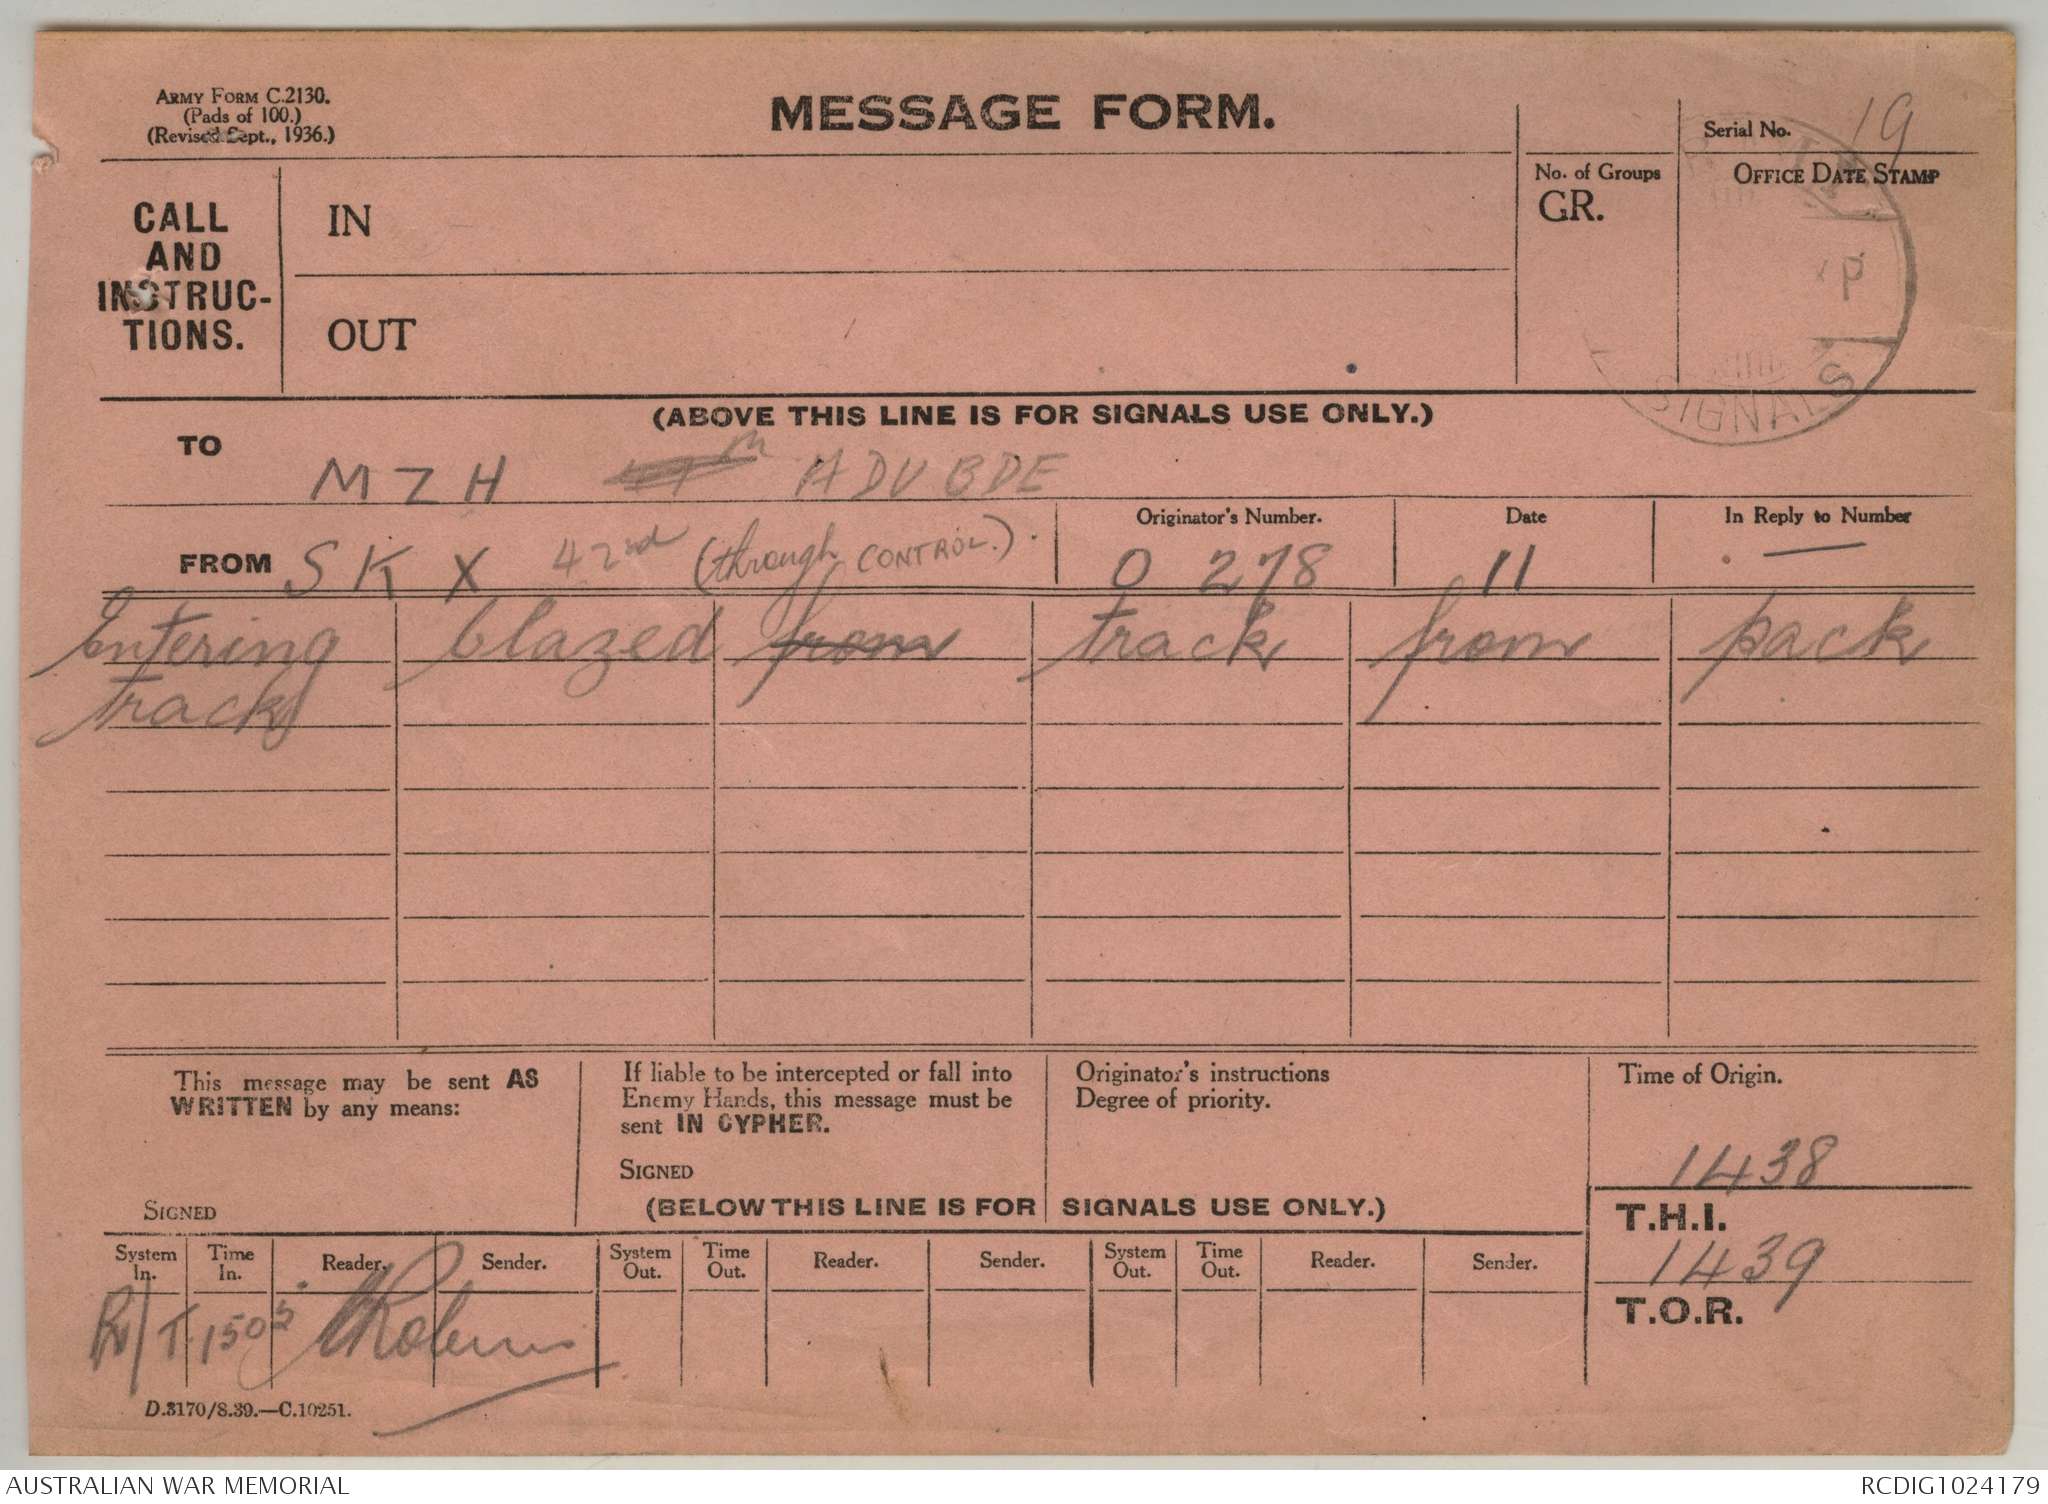 ARMY FORM C.2130.
(Pads of 100.)
(Revised Sept., 1936.)
MESSAGE FORM.
Serial No. 19
CALL AND INSTRUC-TIONS.
IN
OUT
No. of Groups
GR.
OFFICE DATE STAMP
P
SIGNALS
(ABOVE THIS LINE IS FOR SIGNALS USE ONLY.)
TO MZH ADV BDE
FROM SKX 42nd (through CONTROL.)
Originator's Number. O 278
Date 11
In Reply to Number —
Entering blazed from track from pack
track
This message may be sent AS
WRITTEN by any means:
SIGNED
If liable to be intercepted or fall into
Enemy Hands, this message must be
sent IN CYPHER.
SIGNED
Originator's instructions
Degree of priority.
Time of Origin.
1438
(BELOW THIS LINE IS FOR SIGNALS USE ONLY.)
T.H.I.
1439
T.O.R.
System In. Time In. Reader. Sender. System Out. Time Out. Reader. Sender. System Out. Time Out. Reader. Sender.
R/T 1505
D.3170/8.39.—C.10251.
AUSTRALIAN WAR MEMORIAL
RCDIG1024179